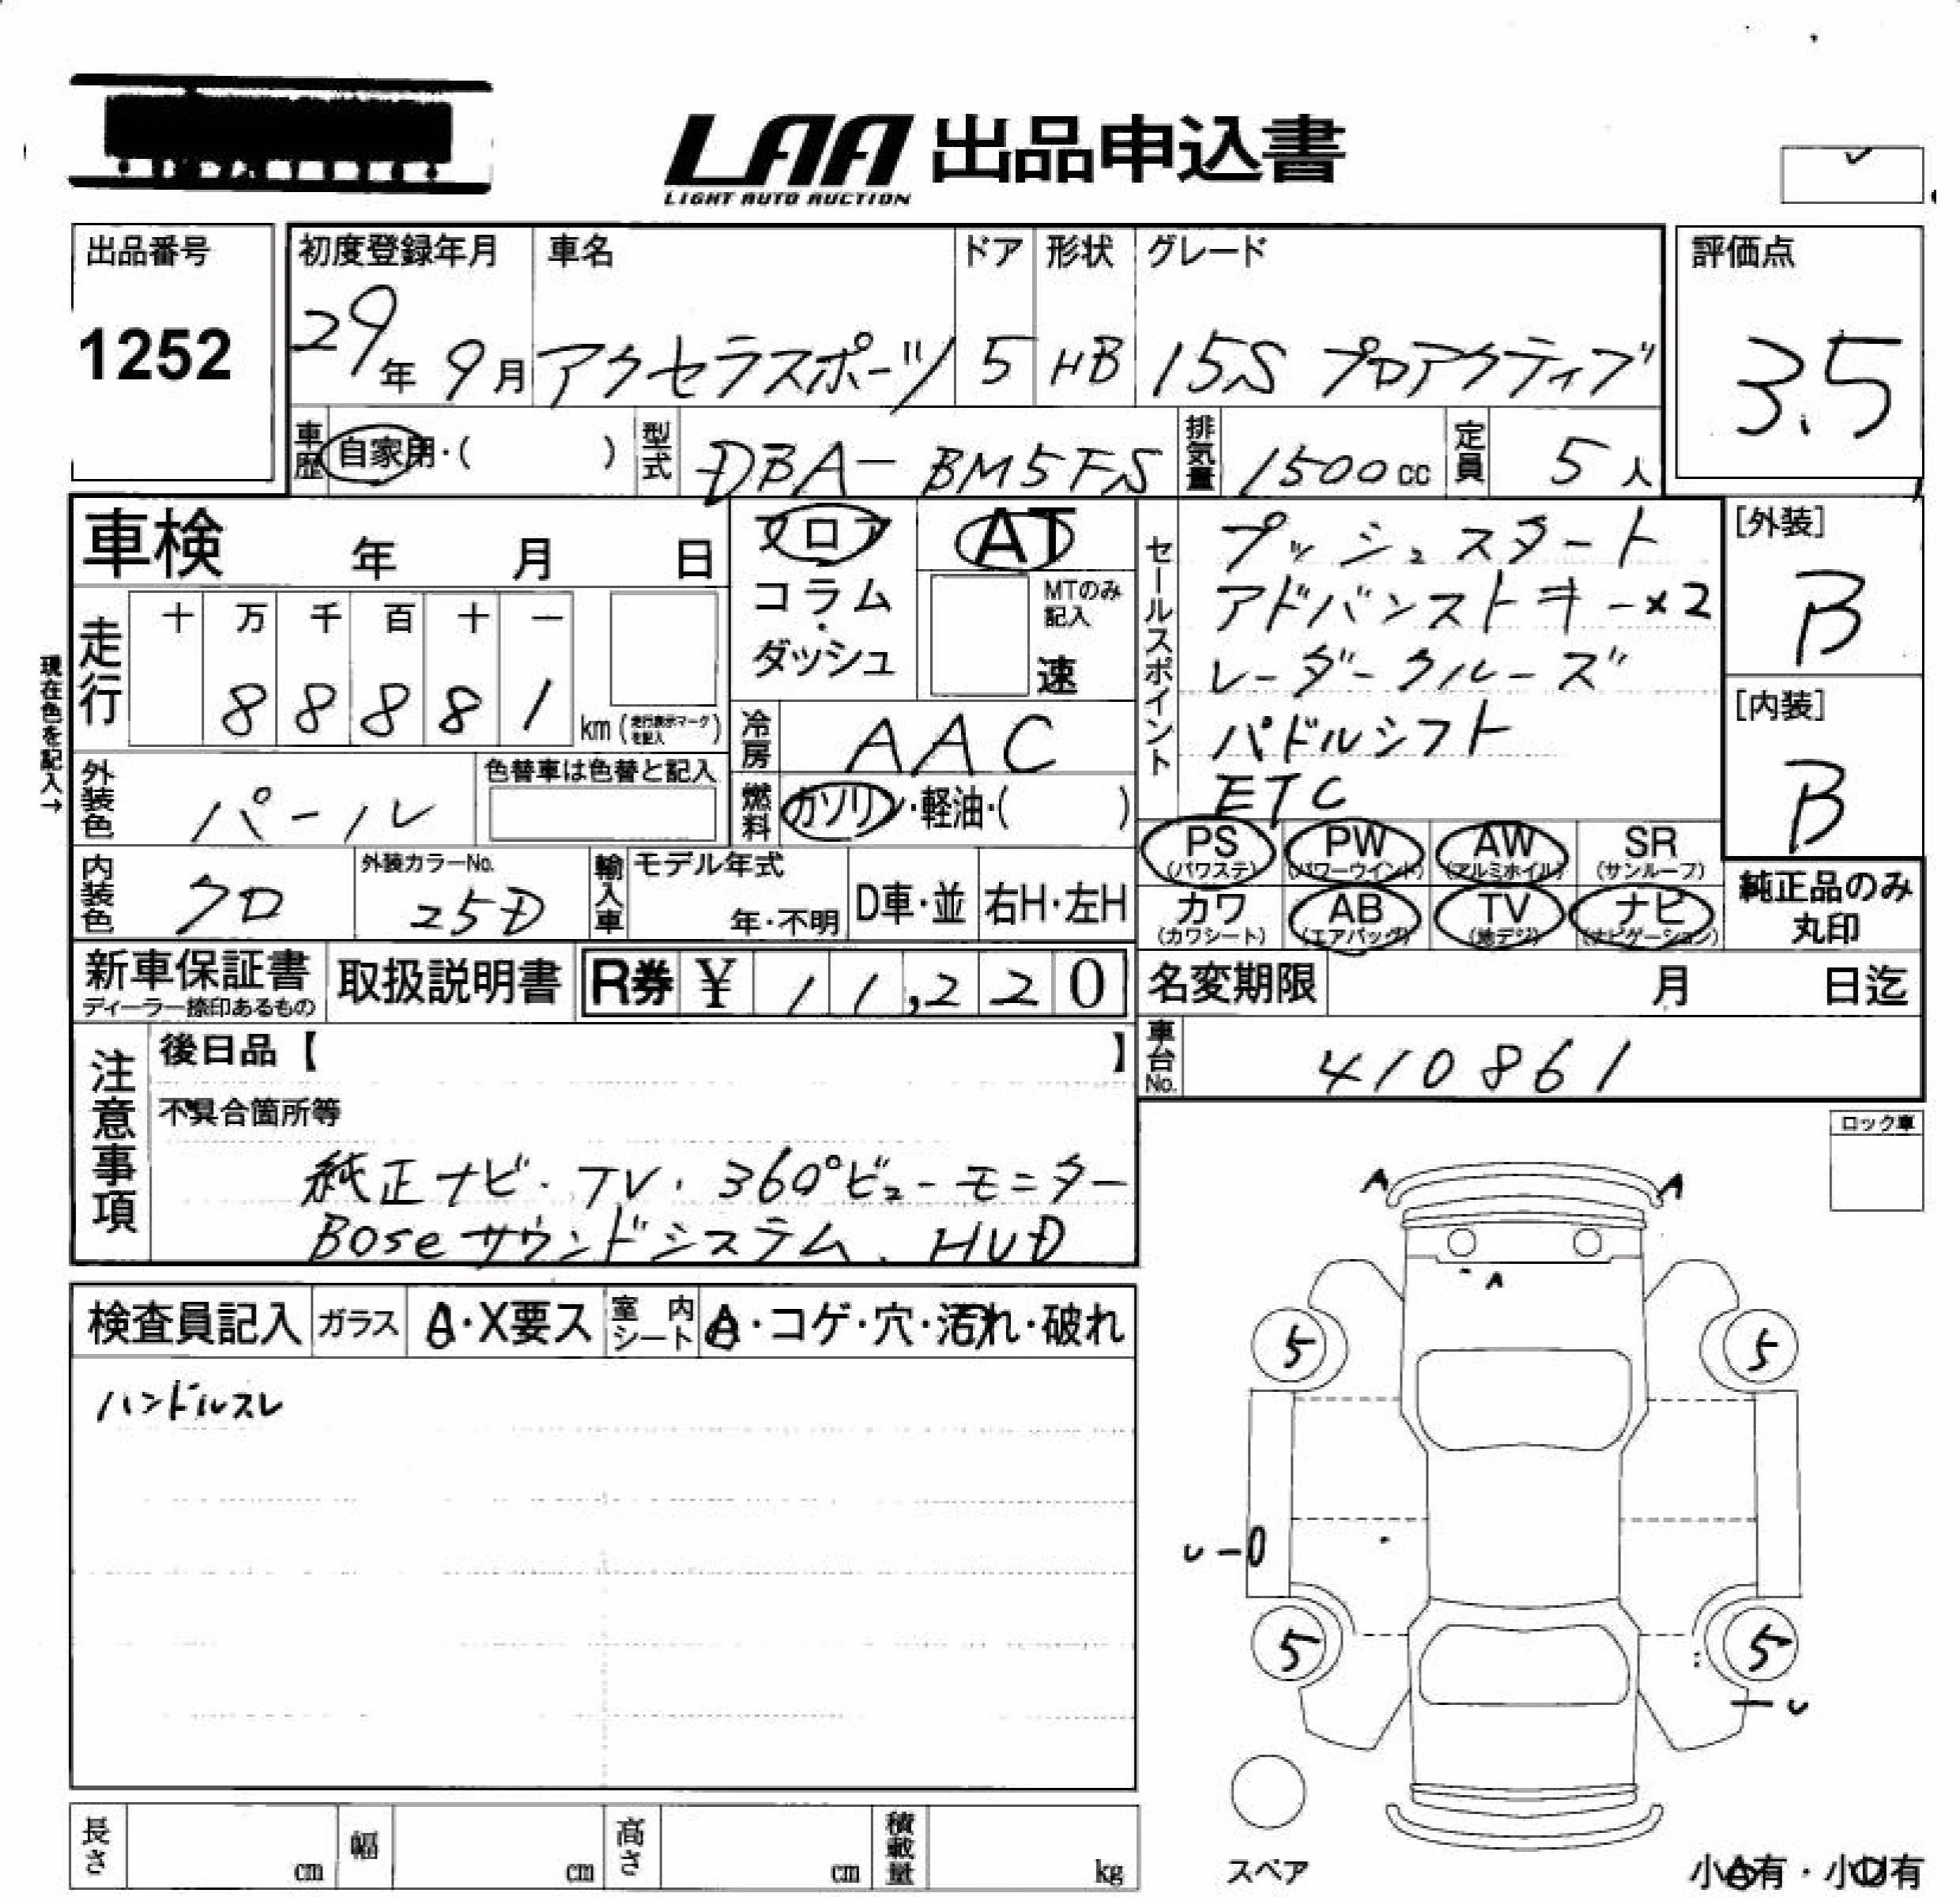 LAA 出品申込書
LIGHT AUTO AUCTION
出品番号
1252
初度登録年月
29年 9月
車名
アクセラスポーツ
ドア
5
形状
HB
グレード
15S プロアクティブ
評価点
3.5
車歴
自家用・( )
型式
DBA-BM5FS
排気量
1500cc
定員
5人
車検 年 月 日
フロア
コラム
ダッシュ
AT
MTのみ
記入
速
セールスポイント
プッシュスタート
アドバンストキー×2
レーダークルーズ
パドルシフト
ETC
[外装]
B
[内装]
B
現在色を記入→
走行
十 万 千 百 十 一
8 8 8 8 1
km (走行表示マークを記入)
冷房
AAC
外装色
パール
色替車は色替と記入
燃料
ガソリン・軽油・( )
PS
(パワステ)
PW
(パワーウインド)
AW
(アルミホイル)
SR
(サンルーフ)
カワ
(カワシート)
AB
(エアバッグ)
TV
(地デジ)
ナビ
(ナビゲーション)
純正品のみ
丸印
内装色
クロ
外装カラーNo.
25D
輸入車
モデル年式
年・不明
D車・並
右H・左H
新車保証書
ディーラー捺印あるもの
取扱説明書
R券 ¥ 11,220
名変期限 月 日迄
車台No.
410861
注意事項
後日品【 】
不具合箇所等
純正ナビ・TV・360°ビューモニター
Boseサウンドシステム、HUD
ロック車
検査員記入
ガラス
A・X要ス
室内シート
A・コゲ・穴・汚れ・破れ
ハンドルスレ
A A
A
5 5
5 5
スペア
小A有・小U有
長さ cm
幅 cm
高さ cm
積載量 kg